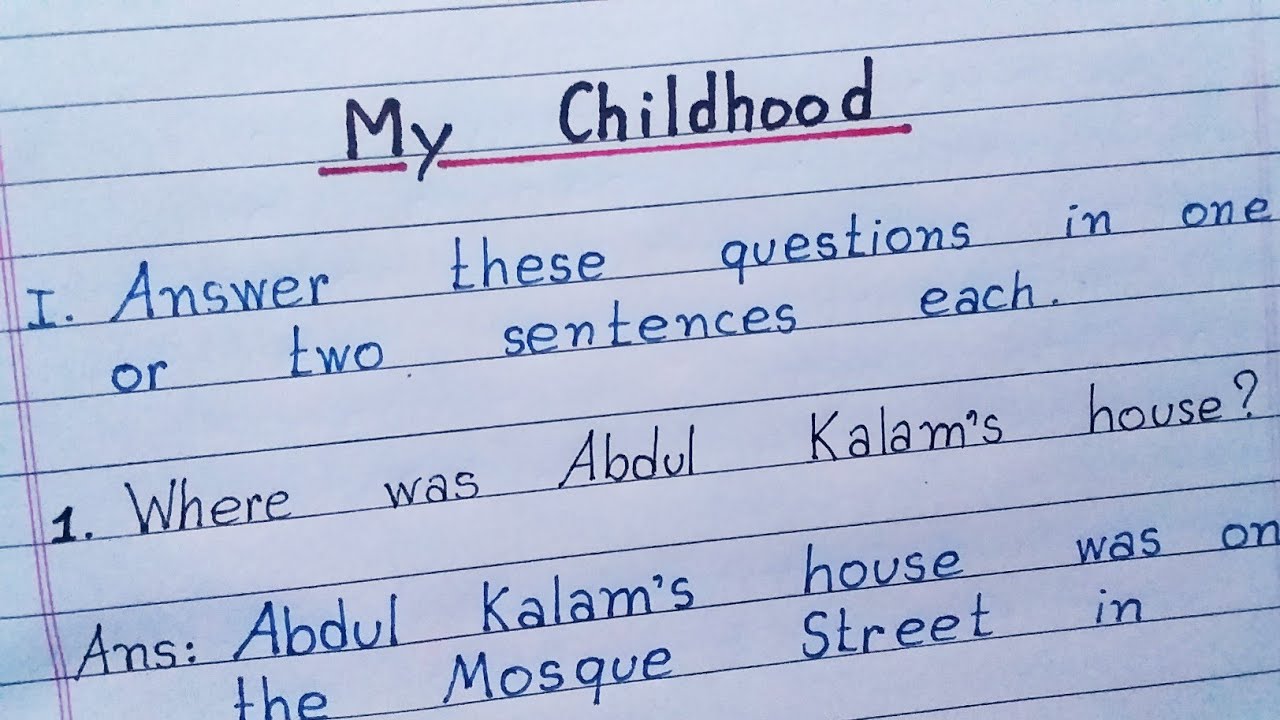 My Childhood
I. Answer these questions in one
or two sentences each.
1. Where was Abdul Kalam's house?
Ans: Abdul Kalam's house was on
the Mosque Street in